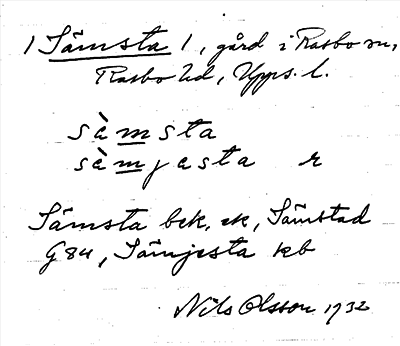 1 Sämsta 1, gård i Rasbo sn,
Rasbo hd, Upps. l.
sàmsta
sàmjesta r
Sämsta bek. ek, Sämstad
G 84, Sämjesta kb
Nils Olsson 1932